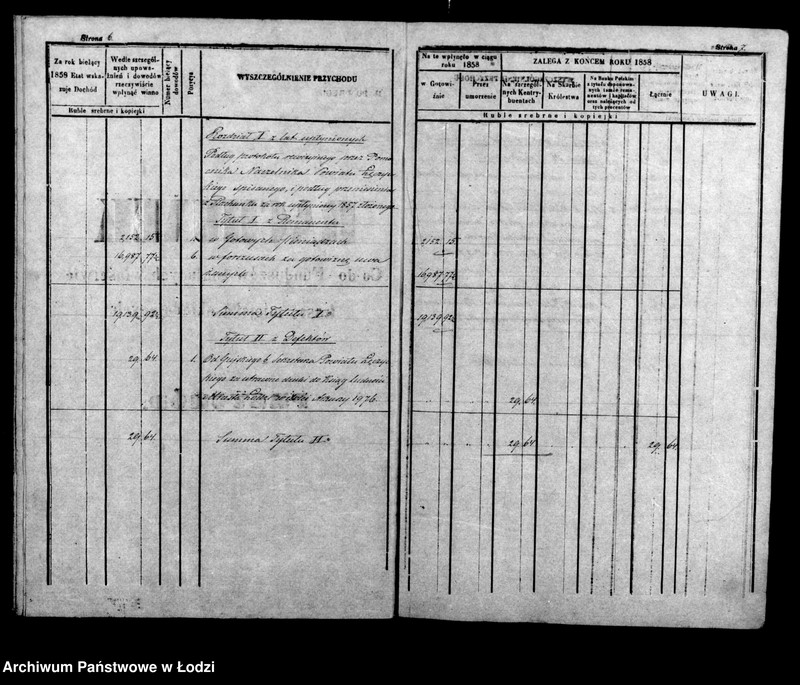 Strona 6.
Za rok bieżący 1858 Etat wskazuje Dochód
Wedle szczególnych upoważnień i dowodów rzeczywiście wpłynąć winno
Numer bieżący dowodów
Pozycya
WYSZCZEGÓLNIENIE PRZYCHODU
Ruble srebrne i kopiejki
Rozdział I z lat upłynionych
Podług protokołu rewizyjnego przez Pomo
cnika Naczelnika Powiatu Łęczy
ckiego spisanego, i podług
z Rachunku za rok upłyniony 1857 złożonego
Tytuł I z Remanentu
2152 15 a. w Gotowych pieniądzach
16987 77½ b. w forszusach za gotowiznę uwa
żanych
19139 92½ Summa Tytułu I°
Tytuł II z Defektów
29. 64. 1. Od Sekretarza Powiatu Łęczy
ckiego za druki do Ksiąg ludności
29. 64. Summa Tytułu II°
Strona 7.
Na to wpłynęło w ciągu roku 1858
w Gotowiźnie
Przez umorzenie
ZALEGA Z KOŃCEM ROKU 1858
Na szczególnych Kontrybuentach
Na Skarbie Królestwa
Na Banku Polskim z tytułu deponowanych tamże remanentów i kapitałów oraz należących od tych procentów
Łącznie
UWAGI.
Ruble srebrne i kopiejki
2152 15
16987 77½
19139 92½
29. 64.
29. 64. 29. 64.
Archiwum Państwowe w Łodzi